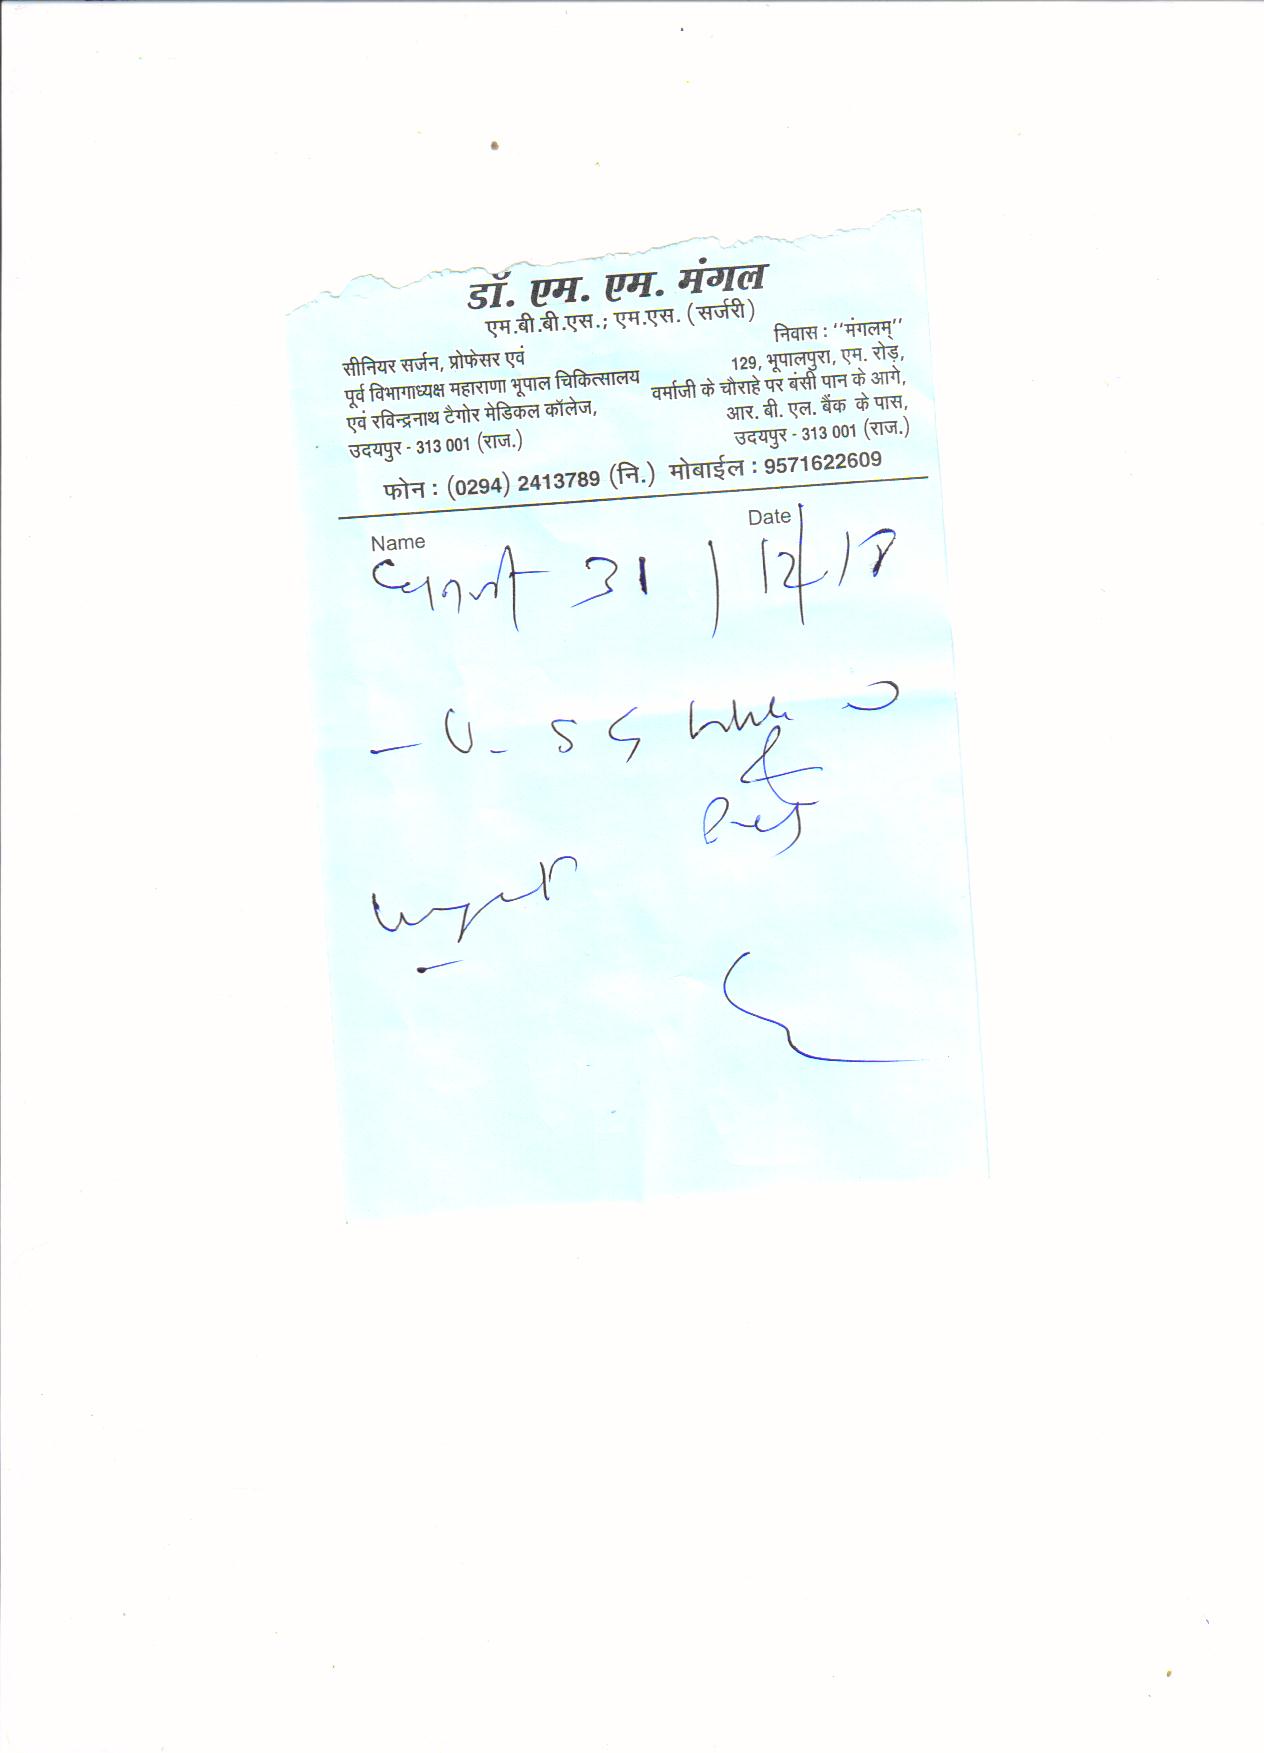 डॉ. एम. एम. मंगल
एम.बी.बी.एस.; एम.एस. (सर्जरी)
सीनियर सर्जन, प्रोफेसर एवं
पूर्व विभागाध्यक्ष महाराणा भूपाल चिकित्सालय
एवं रविन्द्रनाथ टैगोर मेडिकल कॉलेज,
उदयपुर - 313 001 (राज.)
निवास : ''मंगलम्''
129, भूपालपुरा, एम. रोड़,
वर्माजी के चौराहे पर बंसी पान के आगे,
आर. बी. एल. बैंक के पास,
उदयपुर - 313 001 (राज.)
फोन : (0294) 2413789 (नि.) मोबाईल : 9571622609
Name
Date
31 / 12 / 18
- U - S G